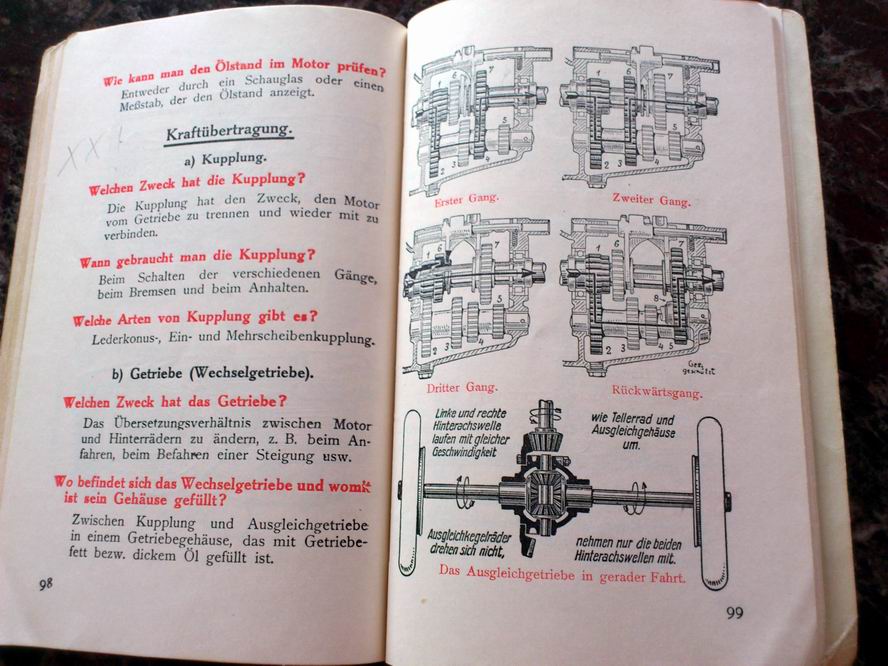 Wie kann man den Ölstand im Motor prüfen?
Entweder durch ein Schauglas oder einen
Meßstab, der den Ölstand anzeigt.
Kraftübertragung.
a) Kupplung.
Welchen Zweck hat die Kupplung?
Die Kupplung hat den Zweck, den Motor
vom Getriebe zu trennen und wieder mit zu
verbinden.
Wann gebraucht man die Kupplung?
Beim Schalten der verschiedenen Gänge,
beim Bremsen und beim Anhalten.
Welche Arten von Kupplung gibt es?
Lederkonus-, Ein- und Mehrscheibenkupplung.
b) Getriebe (Wechselgetriebe).
Welchen Zweck hat das Getriebe?
Das Übersetzungsverhältnis zwischen Motor
und Hinterrädern zu ändern, z. B. beim An-
fahren, beim Befahren einer Steigung usw.
Wo befindet sich das Wechselgetriebe und womit
ist sein Gehäuse gefüllt?
Zwischen Kupplung und Ausgleichgetriebe
in einem Getriebegehäuse, das mit Getriebe-
fett bezw. dickem Öl gefüllt ist.
98
1 6 7
2 3 4 5
Erster Gang.
1 6 7
2 3 4 5
Zweiter Gang.
1 6 7
2 3 4 5
Dritter Gang.
1 6 7
8
2 3 4 5
Ges.
geschützt
Rückwärtsgang.
Linke und rechte
Hinterachswelle
laufen mit gleicher
Geschwindigkeit
wie Tellerrad und
Ausgleichgehäuse
um.
Ausgleichkegelräder
drehen sich nicht,
nehmen nur die beiden
Hinterachswellen mit.
Das Ausgleichgetriebe in gerader Fahrt.
99